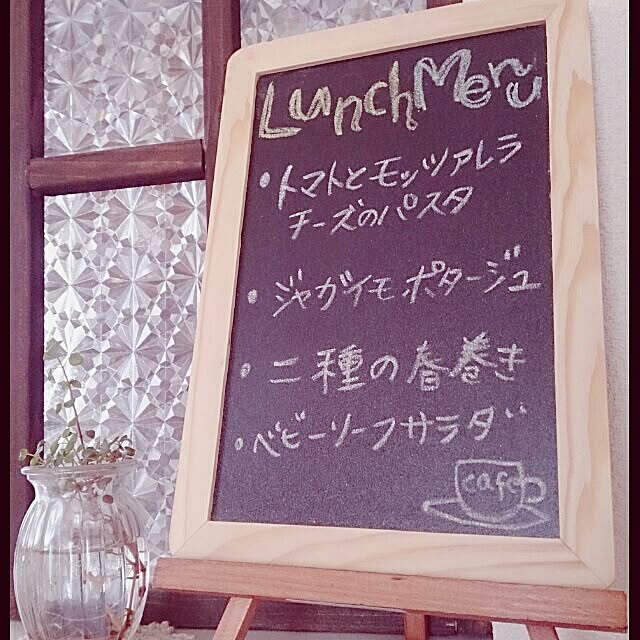 Lunch Menu
・トマトとモッツァレラ
チーズのパスタ
・ジャガイモポタージュ
・二種の春巻き
・ベビーリーフサラダ
cafe